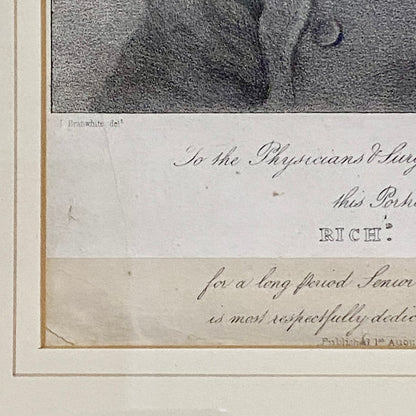 I Branwhite delt.
To the Physicians & Surg
this Portr
RICHd.
for a long Period Senior
is most respectfully dedic
Published 1st Augu